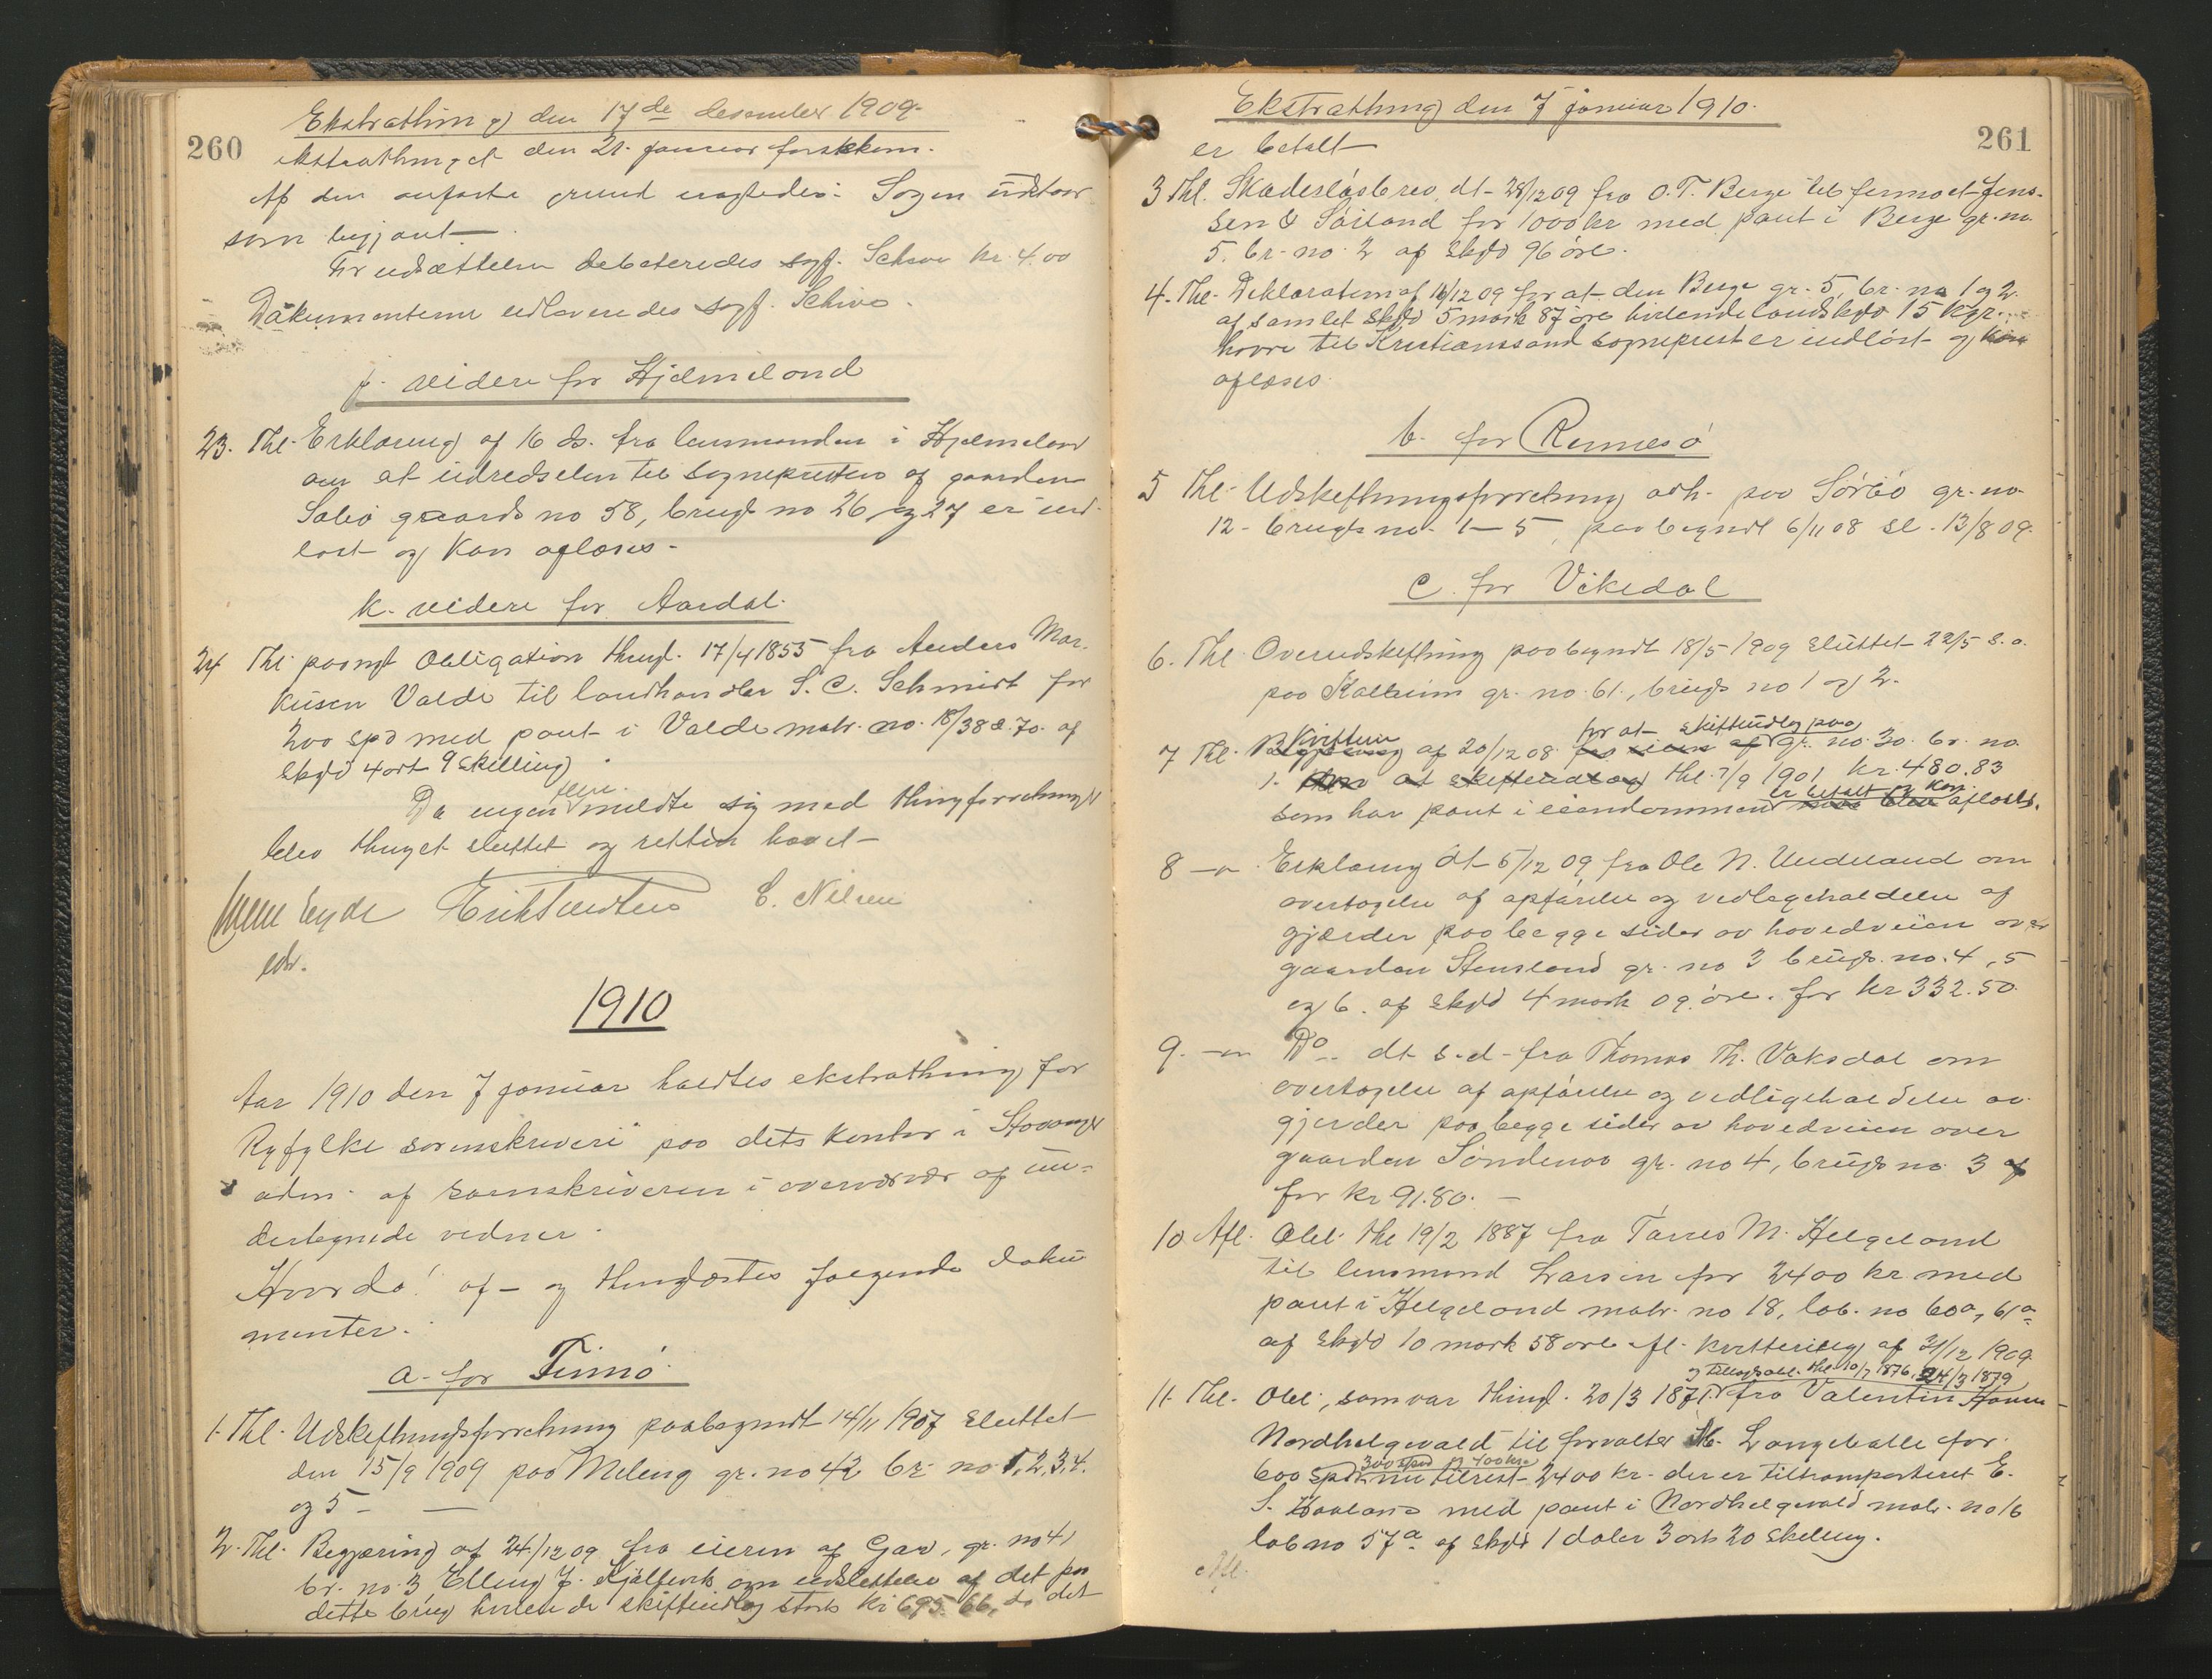 Ekstrathing den 17de desember 1909.
260
ekstrathinget den 21. januar forstkom.
Af den anførte grund eragtedes: Sagen udstaar
som begjært.
For udsættelsen debiteredes sagf. Schive kr. 4.00
Dokumenterne udleveredes sagf. Schive.
j. videre for Hjelmeland
23. Thl. Erklæring af 16 ds. fra lensmanden i Hjelmeland
om at udredselen til sognepresten af gaarden
Sabø gaards no 58, brugs no 26 og 27 er ind-
løst og kan aflæses.
k. videre for Aardal.
24 Thl. paany Obligation thingl. 17/4 1855 fra Anders Mar-
kusen Valde til landhandler S. C. Schmidt for
200 spd med pant i Valde matr. no. 18/38 a. 70. af
skyld 4 ort 9 skilling.
Da ingen flere meldte sig med thingforretninger
blev thinget sluttet og retten hævet
C. Nilsen
edr.
1910
Aar 1910 den 7 januar holdtes ekstrathing for
Ryfylke sorenskriveri paa dets kontor i Stavanger
adm. af sorenskriveren i overvær af un-
dertegnede vidner.
Hvorda! af- og thinglæstes følgende doku
menter.
a. for Finnø.
1. Thl. Udskiftningsforretning paabegyndt 14/11 1907 sluttet
den 15/9 1909 paa Meling gr. no 42 br. no 1, 2, 3, 4.
og 5 —
2. Thl. Begjæring af 24/12 09 fra eieren af Gar, gr. no 41
br. no. 3 Elling J. Kjølevik om udslettelse af det paa
dette brug hvilende skifteudlæg stort kr 695.66, da det
Ekstrathing den 7 januar 1910.
261
er betalt
3 Thl. Skadesløsbrev dt. 28/12 09 fra O. T. Berge til firmaet Jens-
sen & Søiland for 1000 kr med pant i Berge gr. no.
5. br. no. 2 af skyld 96 øre.
4. Thl. Deklaration af 16/12 09 for at den Berge gr. 5, br. no 1 og 2.
af samlet skyld 5 mark 87 øre hvilende landskyld 15 kgr.
havre til Kristianssand sogneprest er indløst og kan
aflæses.
b. for Rennesø
5 Thl. Udskiftningsforretning adh. paa Sørbø gr. no.
12. brugs no. 1–5, paabegyndt 6/11 08 sl. 13/8 09.
c. for Vikedal
6. Thl. Overudskiftning paabegyndt 18/5 1909 sluttet 22/5 s. a.
paa Kalheim gr. no. 61, brugs no 1 og 2.
for at skifteudlæg paa
7 Thl. Kvittering af 20/12 08 gr. no. 30. br. no.
1. thl. 7/9 1901 kr. 480.83
er betalt og kan
som har pant i eiendommen aflæses.
8 –"– Erklæring dt 5/12 09 fra Ole N. Undeland om
overtagelse af opførelse og vedligeholdelse af
gjærder paa begge sider av hovedveien over
gaarden Stensland gr. no 3 brugs. no. 4, 5
og 6. af skyld 4 mark 09 øre. for kr 332.50.
9. –"– Do dt s. d. fra Thomas Th. Vaksdal om
overtagelse af opførelse og vedligeholdelse av
gjerder paa begge sider av hovedveien over
gaarden Søndenaa gr. no 4, brugs no. 3 af
for kr 91.80. –
10 Afl. Obl. thl 19/2 1887 fra Tørres M. Helgeland
til lensmand Larsen for 2400 kr med
pant i Helgeland matr. no 18, løb. no 60a, 61a
af skyld 10 mark 58 øre efl. kvittering af 31/12 1909.
og Tillægsobl. thl. 10/7 1876, 24/3 1879
11. Thl. Obl., som var thingl. 20/3 1871 fra Valentin
Nordhelgevald til forvalter M. Langballe for
300 spd og 400 kr.
600 spd. nu tilrest 2400 kr. der er tiltransporteret E.
S. Haaland med pant i Nordhelgevald matr. no 16
løb no 57a af skyld 1 daler 3 ort 20 skilling.
Afl.